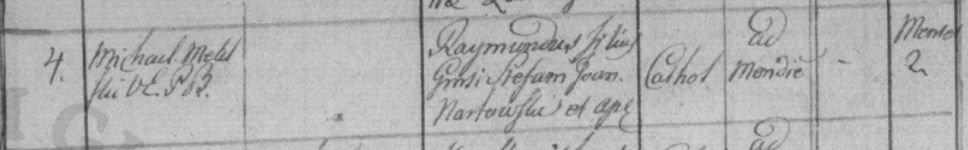 4.
Michael Melel
ski V.E. P.B.
Raymundus filius
Gnsi Stefani Joan.
Nartowski et apę
Cathol
Ad
Mondie
-
Menses
2